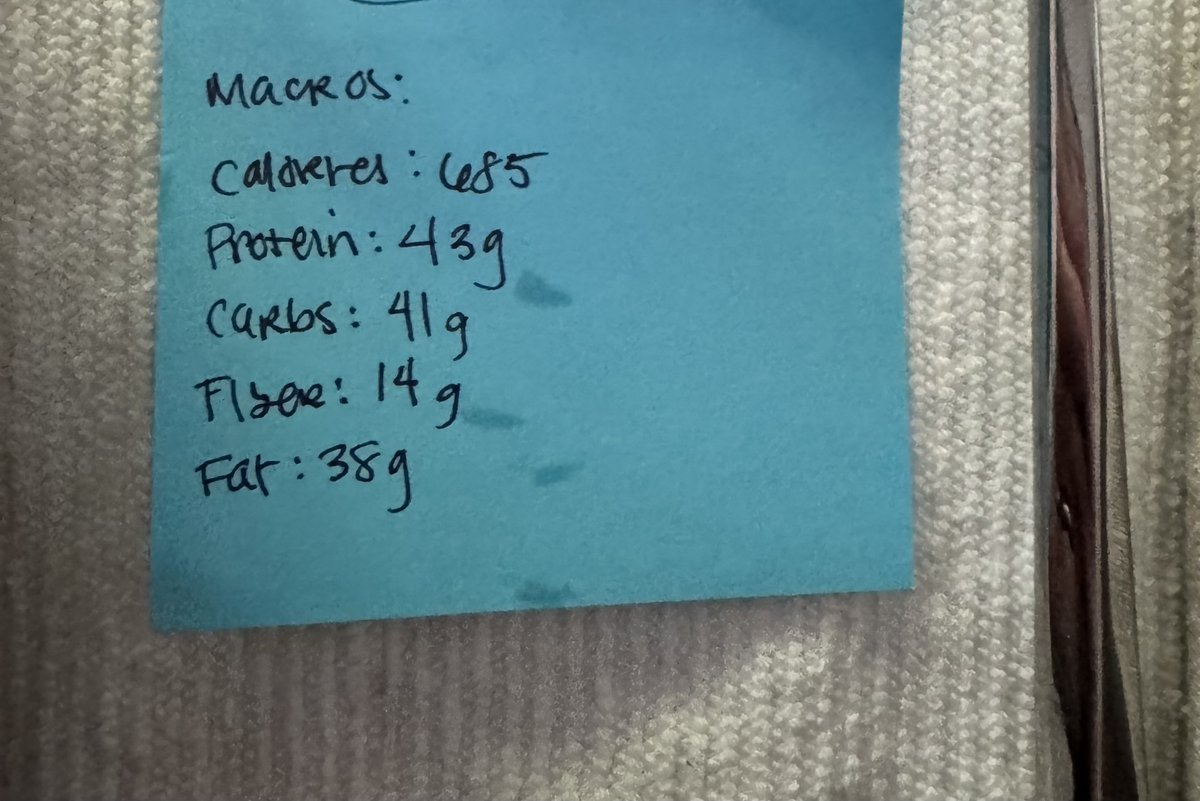 Macros:
Caloreres: 685
Protein: 43g
Carbs: 41g
Fiber: 14g
Fat: 38g